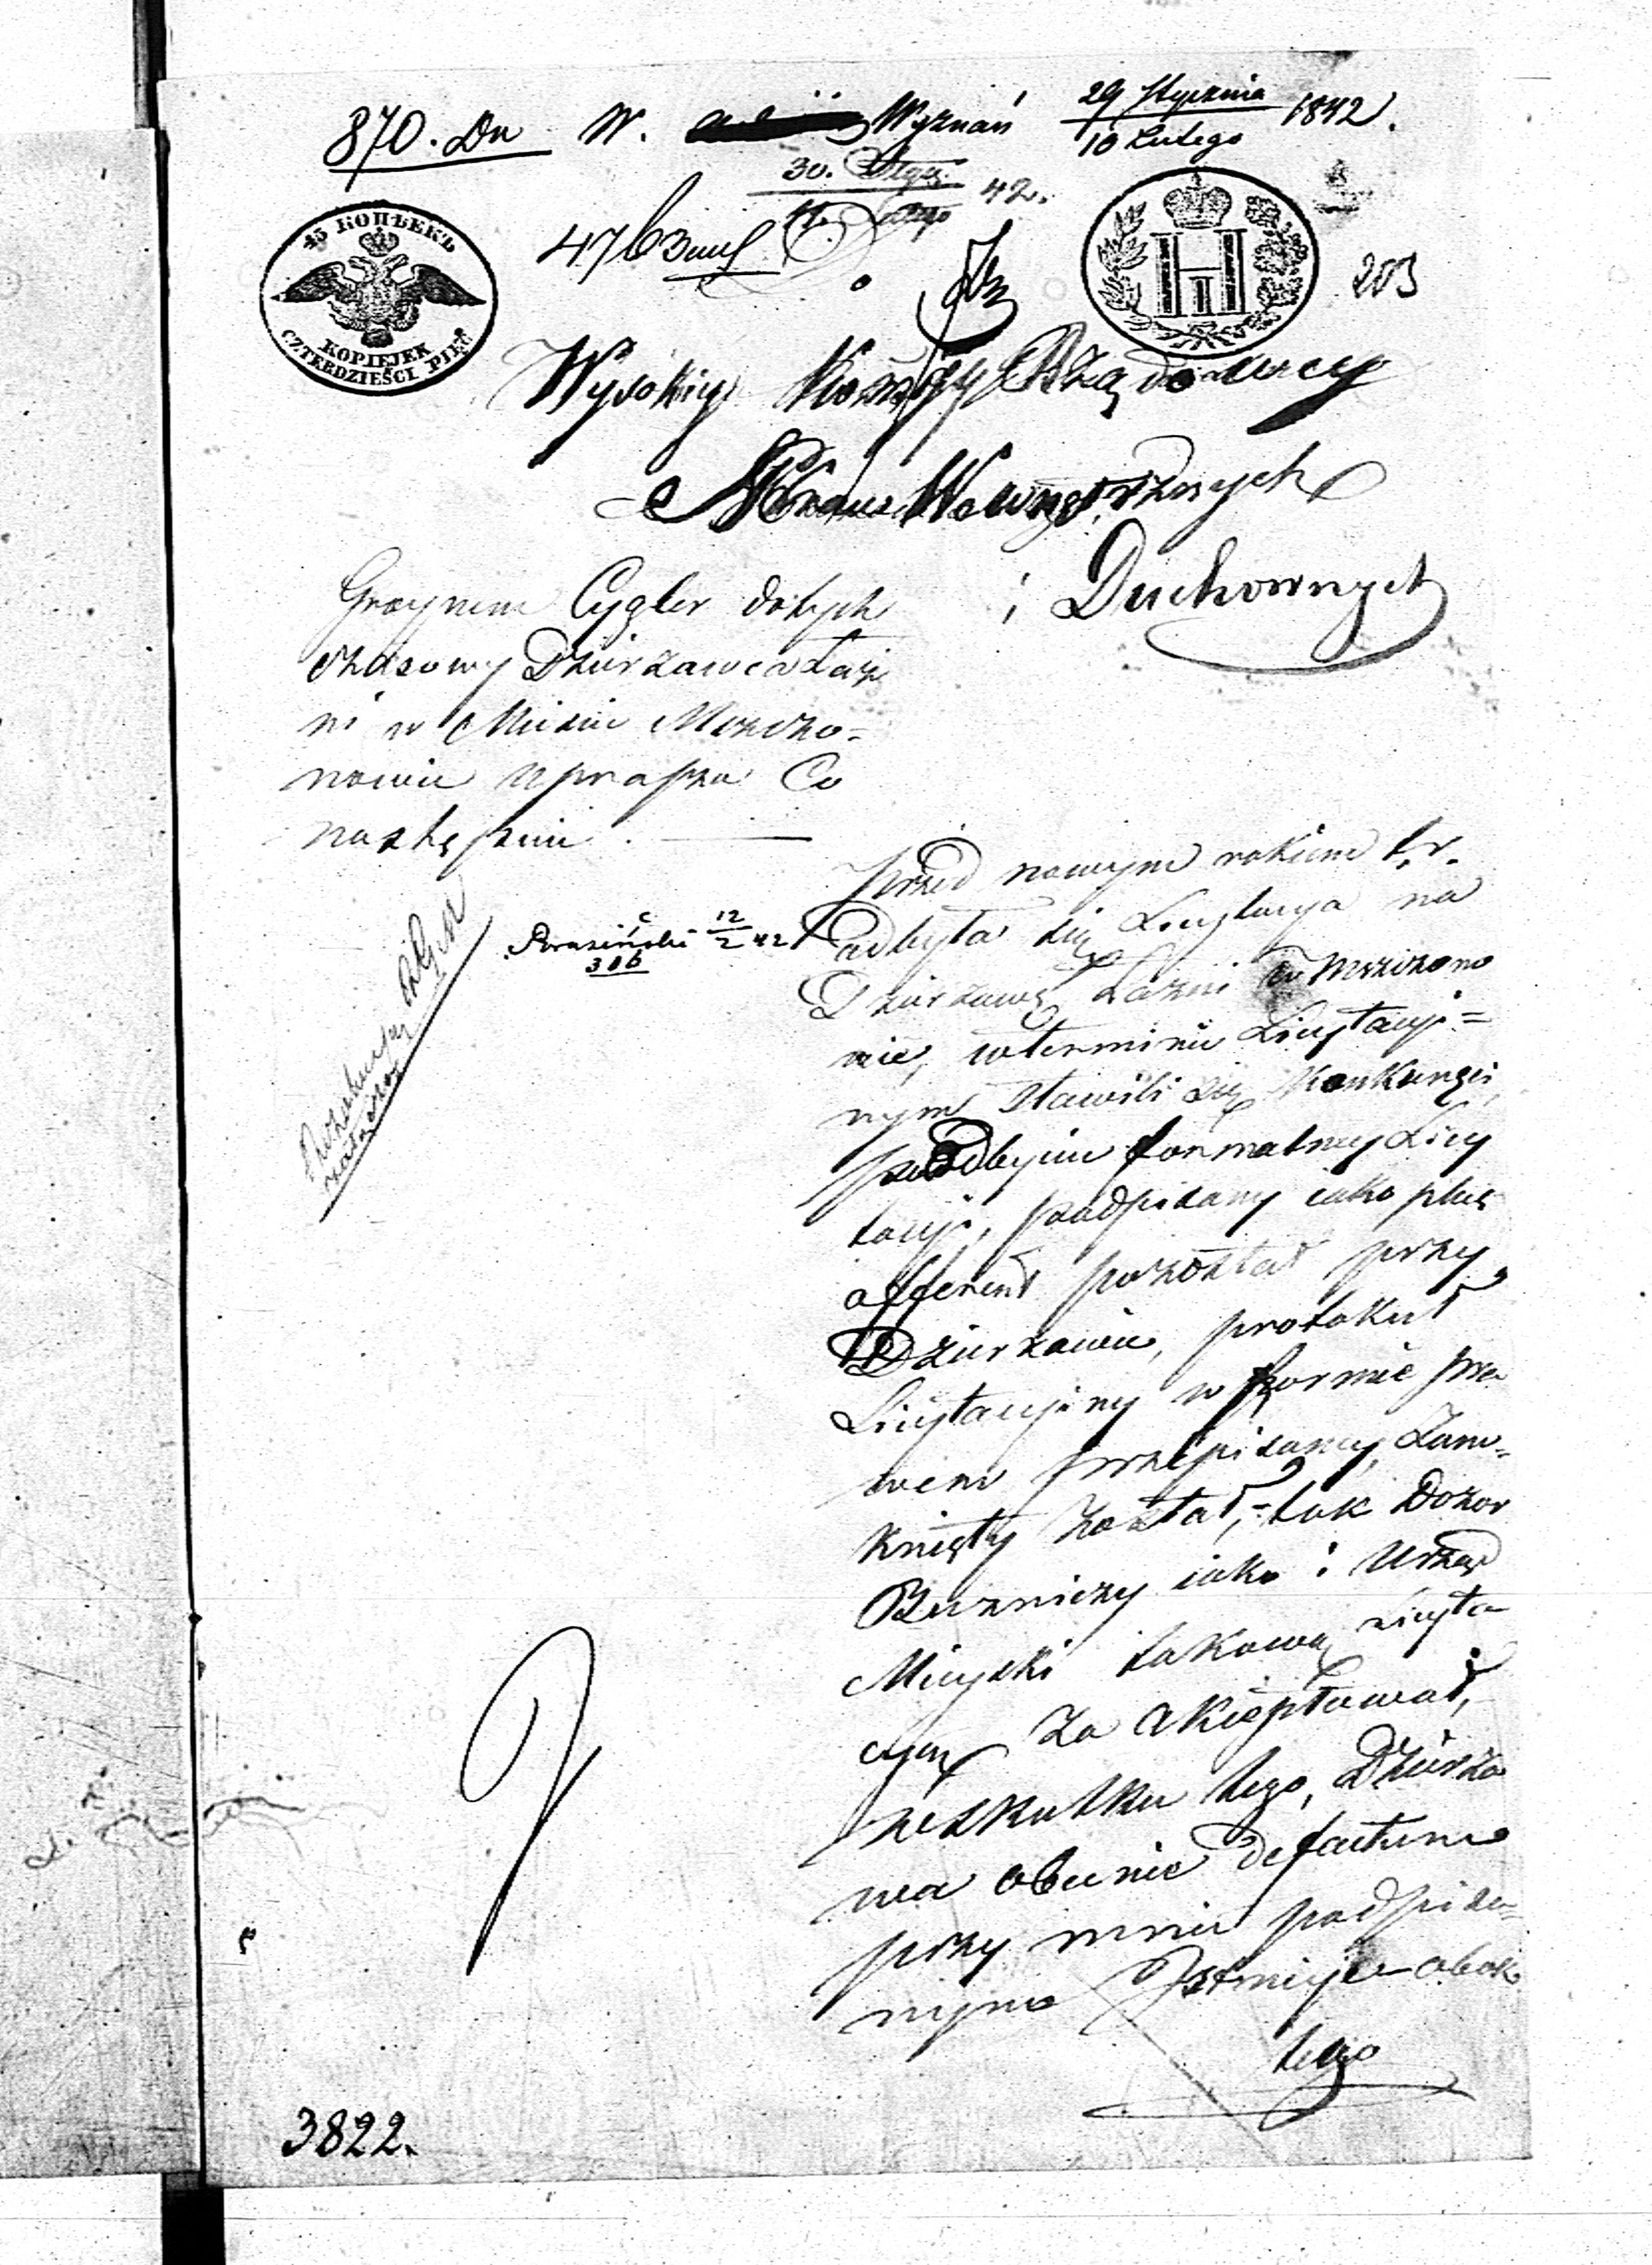 870. Dn W. Wyznań 29 Stycznia 1842.
10 Lutego
30. Stycz. 42.
11. Lutego
203
45 КОПѢЕКЪ
KOPIEJEK
CZTERDZIEŚCI PIĘĆ
Н
I
Wysokiej Kommissyi Rządowey
Spraw Wewnętrznych
i Duchownych
Cygler dotych
czasowy Dzierżawca Łaź
ni w Mieście Mszczo=
nowie uprasza Co
następuie.
Przed nowym rokiem t.r.
odbyła się Licytacya na
Dzierżawę Łaźni w Mszczono
wie, w terminie Licytacyi=
nym stawili się Konkurenci,
po odbyciu formalney Licy
tacyi, podpisany iako plus
offerent pozostał przy
Dzierżawie, protokuł
Licytacyiny w formie pra
wem przepisaney Zam=
knięty został,= tak Dozor
Buzniczy iako i Urząd
Mieyski takową licyta
cyą za akceptował,
w skutku tego, Dzierża
wa obecnie de factum
przy mnie podpisa=
nym istnieje obok
tego
12
2 42
306
3822.